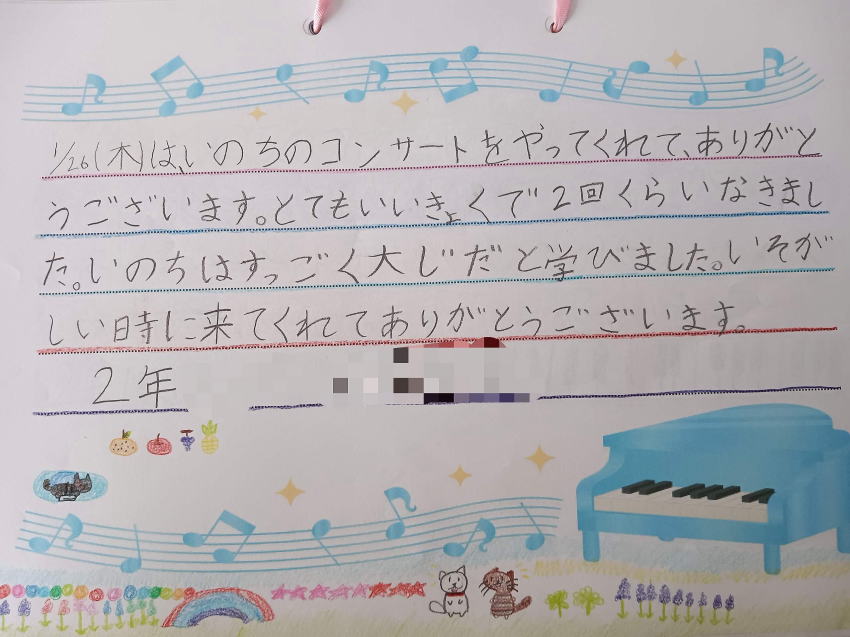 1/26(木)は、いのちのコンサートをやってくれて、ありがと
うございます。とてもいいきょくで2回くらいなきまし
た。いのちはすっごく大じだと学びました。いそが
しい時に来てくれてありがとうございます。
2年